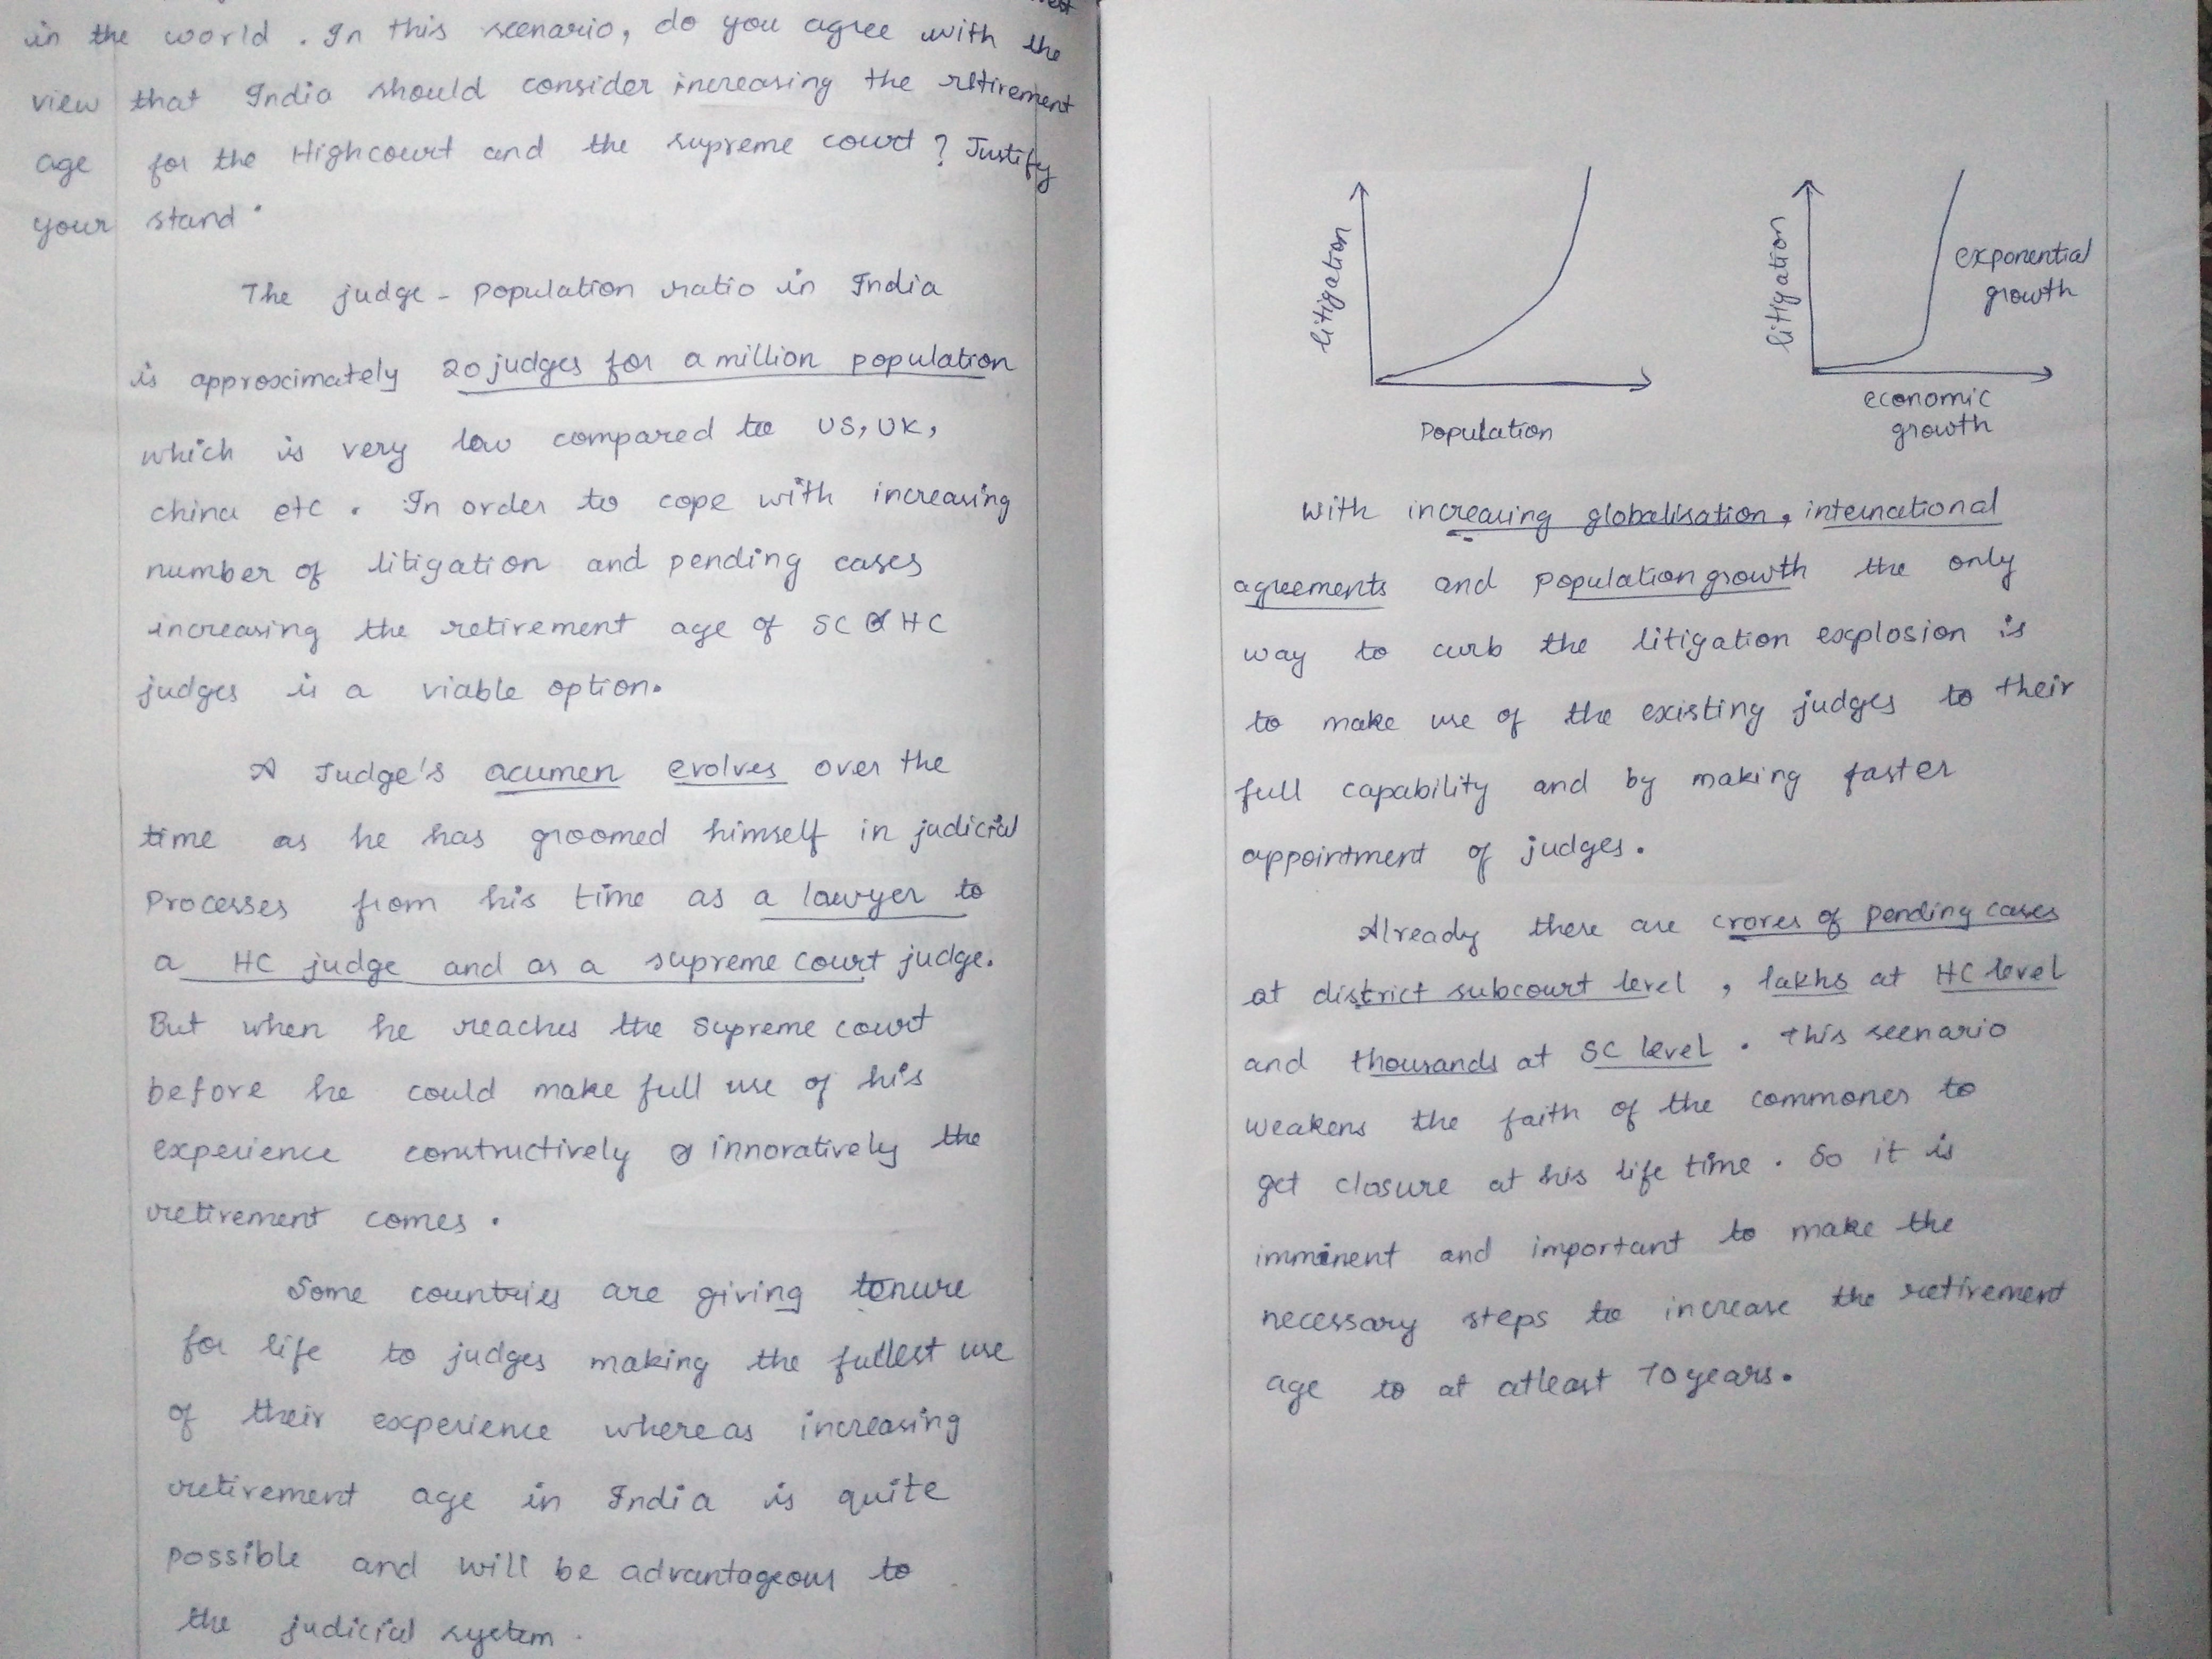 in the world. In this scenario, do you agree with the
view that India should consider increasing the retirement
age for the Highcourt and the supreme court? Justify
your stand.
The judge - population ratio in India
is approximately 20 judges for a million population
which is very low compared to US, UK,
china etc. In order to cope with increasing
number of litigation and pending cases
increasing the retirement age of SC & HC
judges is a viable option.
A Judge's acumen evolves over the
time as he has groomed himself in judicial
processes from his time as a lawyer to
a HC judge and as a supreme court judge.
But when he reaches the supreme court
before he could make full use of his
experience constructively & innovatively the
retirement comes.
Some countries are giving tenure
for life to judges making the fullest use
of their experience whereas increasing
retirement age in India is quite
possible and will be advantageous to
the judicial system.
litigation
Population
litigation
exponential
growth
economic
growth
With increasing globalisation, international
agreements and population growth the only
way to curb the litigation explosion is
to make use of the existing judges to their
full capability and by making faster
appointment of judges.
Already there are crores of pending cases
at district subcourt level, lakhs at HC level
and thousands at SC level. This scenario
weakens the faith of the commoner to
get closure at his life time. So it is
imminent and important to make the
necessary steps to increase the retirement
age to at atleast 70 years.